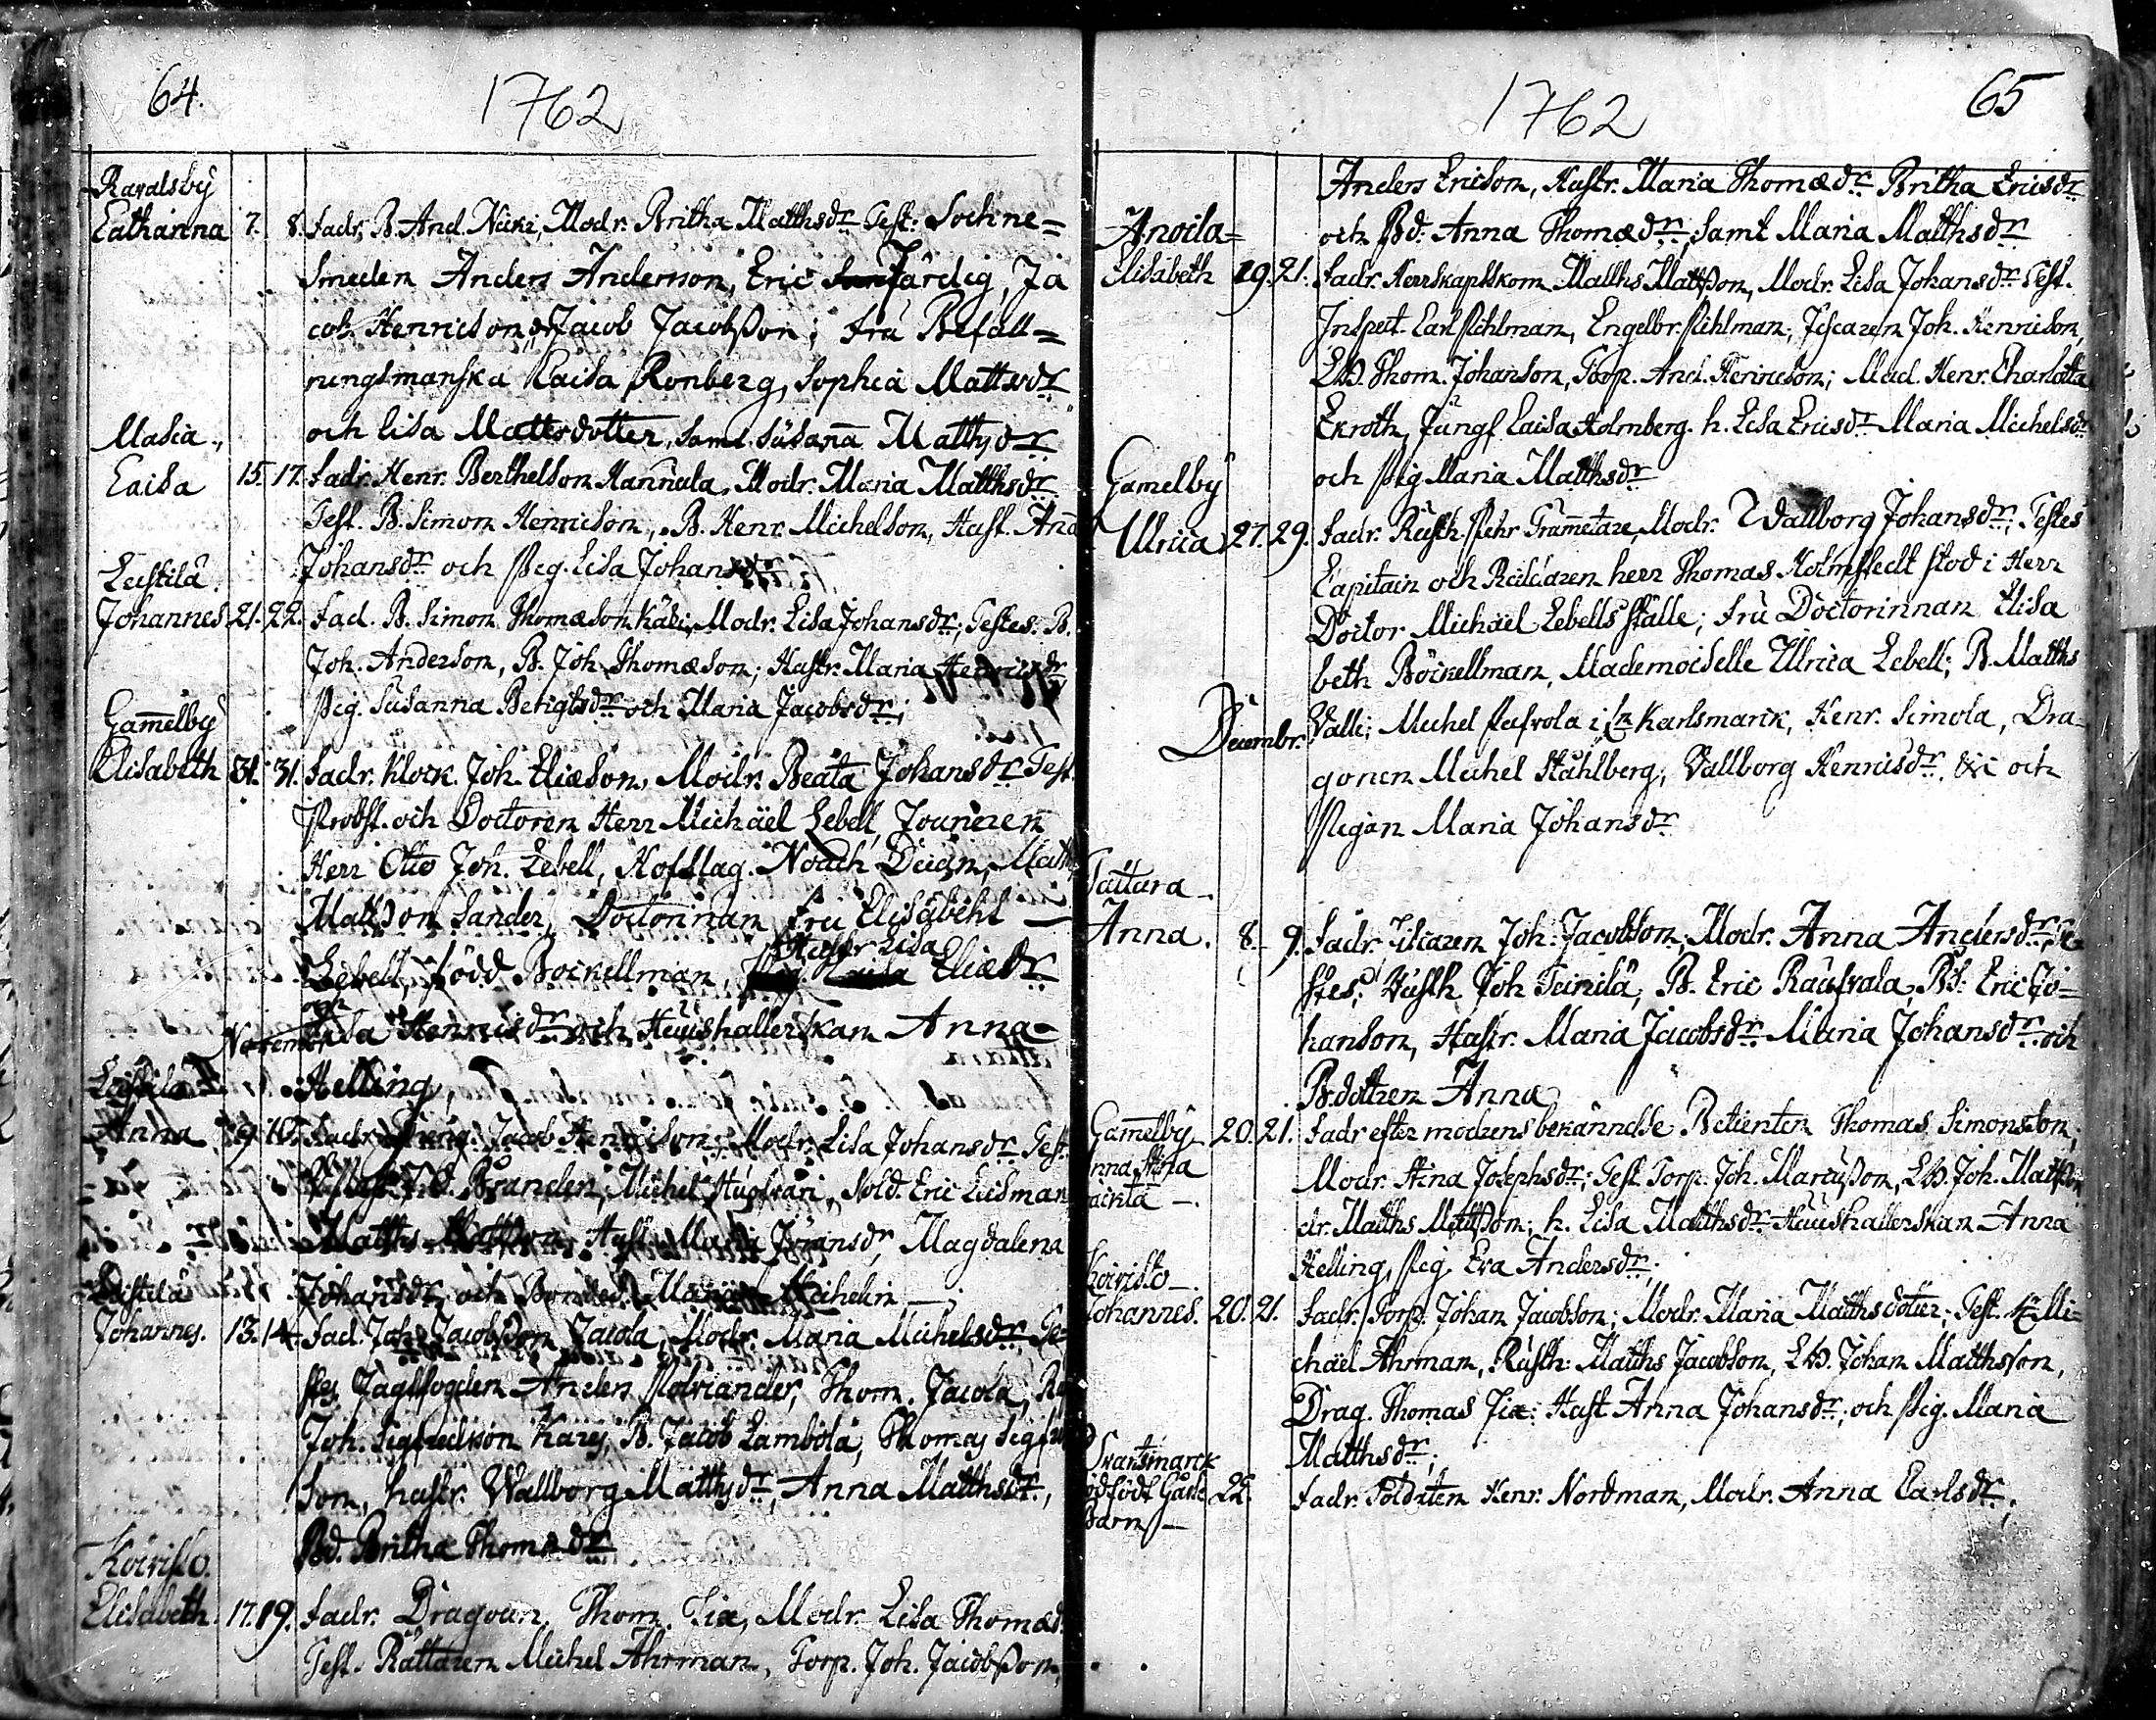 64.
1762
Ravalsby
Catharina 7. 8. Fadr. B. And. Nicki, Modr. Britha Matthsdr Test. Sochne=
smeden Anders Andersson, Eric Färdig, Ja
cob Henricson, Jacob Jacobsson; Fru Befall=
ningsmanska Caisa Ronberg, Sophia Mattsdr
och Lisa Mattsdotter, samt Susana Matthsdr
Masia.,
Caisa 15. 17. Fadr. Henr. Berthelson Hannula, Modr. Maria Matthsdr
Test. B. Simon Henricson, B. Henr. Michelson, Hust. Ana
Johansdr och Pig. Lisa Johansdr
Leistilä
Johannes 21. 22. Fad. B. Simon Thomæson Käki, Modr. Lisa Johansdr; Testes: B.
Joh. Anderson, B. Joh. Thomæson; Hustr. Maria Henricsdr
Pig. Susanna Bengtsdr och Maria Jacobsdr;
Gamelby
Elisabeth 31. 31. Fadr. Klock. Joh. Eliæson, Modr. Beata Johansdr Test.
Probst. och Doctoren Herr Michäel Lebell, Junceren
Herr Otto Joh. Lebell, Hofslag. Noach Decijn, Matths
Mattson Sander, Doctorinnan Fru Elisabeht
Hustr Lisa
Lebell, född Böckellman, Eliædr
och
Lisa Henricsdr och Huushallerskan Anna
November
Helling
Leistilä
Anna 9. 10. Fadr. Jacob Henricson, Modr. Lisa Johansdr Test.
J. O. Branden, Michel Hugfvari, Sold. Eric Lustman
Matths Mattson, Hust. Maria Jöransdr, Magdalena
Leistilä Johansdr och Bonded. Maria Michelin
Johannes. 13. 14. Fad. Joh. Jacobsson Jacola, Modr. Maria Michelsdr Te=
stes Jagtfogden Anders Polviander, Thom. Jacola,
Joh. Sigfredsson Karej, B. Jacob Lambola, Thomas Sigfred
son, hustr. Wallborg Matthsdr, Anna Matthsdr,
Bd. Britha Thomædr
Koivisto.
Elisabeth. 17. 19. Fadr. Dragoun. Thom. Fix, Modr. Lisa Thomæd.
Test. Rättaren Michel Ahrman, Torp. Joh. Jacobsson,
1762
65
Anders Ericson, Hustr. Maria Thomædr Britha Ericsdr
och Bd. Anna Thomædr, samt Maria Matthsdr
Anoila=
Elisabeth 19. 21. Fadr. Herrskapskom Matths Mattson, Modr. Lisa Johansdr Test.
Inspect. Carl Pihlman, Engelbr. Pihlman, Fiscaren Joh. Henricson,
LB. Thom. Johanson, Torp. And. Henricson; Mad. Henr. Charlotta
Ekroth, Jungf. Caisa Holmberg. h. Lisa Ericsdr Maria Michelsdr
och Pig Maria Matthsdr
Gamelby
Ulrica 27. 29. Fadr. Rusth. Pehr Trumetare, Modr. Wallborg Johansdr; Testes
Capitain och Riddaren herr Thomas Holmstedt stod i Herr
Doctor Michäel Lebells ställe; Fru Doctorinnan Elisa
beth Böckellman, Mademoiselle Ulrica Lebell; B. Matths
Decembr. Valli; Michel Pafvola i Ln Karlsmarck, Henr. Simola, Dra=
gonen Michel Ståhlberg, Vallborg Henricsdr och
Pigan Maria Johansdr
Tattara
Anna. 8. 9. Fadr. Fiscaren Joh. Jacobson, Modr. Anna Andersdr Te=
stes, Rusth. Joh Tunilä, B. Eric Rautvala, Bd: Eric Jo=
hanson, Hustr. Maria Jacobsdr Maria Johansdr och
B. dottren Anna
Gamelby 20. 21. Fadr efter modrens bekännelse Betienten Thomas Simonsson,
Anna Stina
oäckta Modr. Stina Josephsdr; Test. Torp. Joh. Marcusson, LB. Joh. Mattson
dr. Matths Mattson; h. Lisa Matthsdr Huushallerskan Anna
Helling, Pig. Eva Andersdr;
Koivisto
Johannes. 20. 21. Fadr. Torp. Johan Jacobson; Modr. Maria Matthsdotter; Test. Mi=
chäel Ahrman, Rusth: Matths Jacobson, LB. Johan Matthsson,
Drag. Thomas Fix: Hust Anna Johansdr; och Pig. Maria
Matthsdr;
Svartsmarck
dödfödt Gåsse
Barn 22. Fadr. Soldaten Henr. Nordman, Modr. Anna Carlsdr;